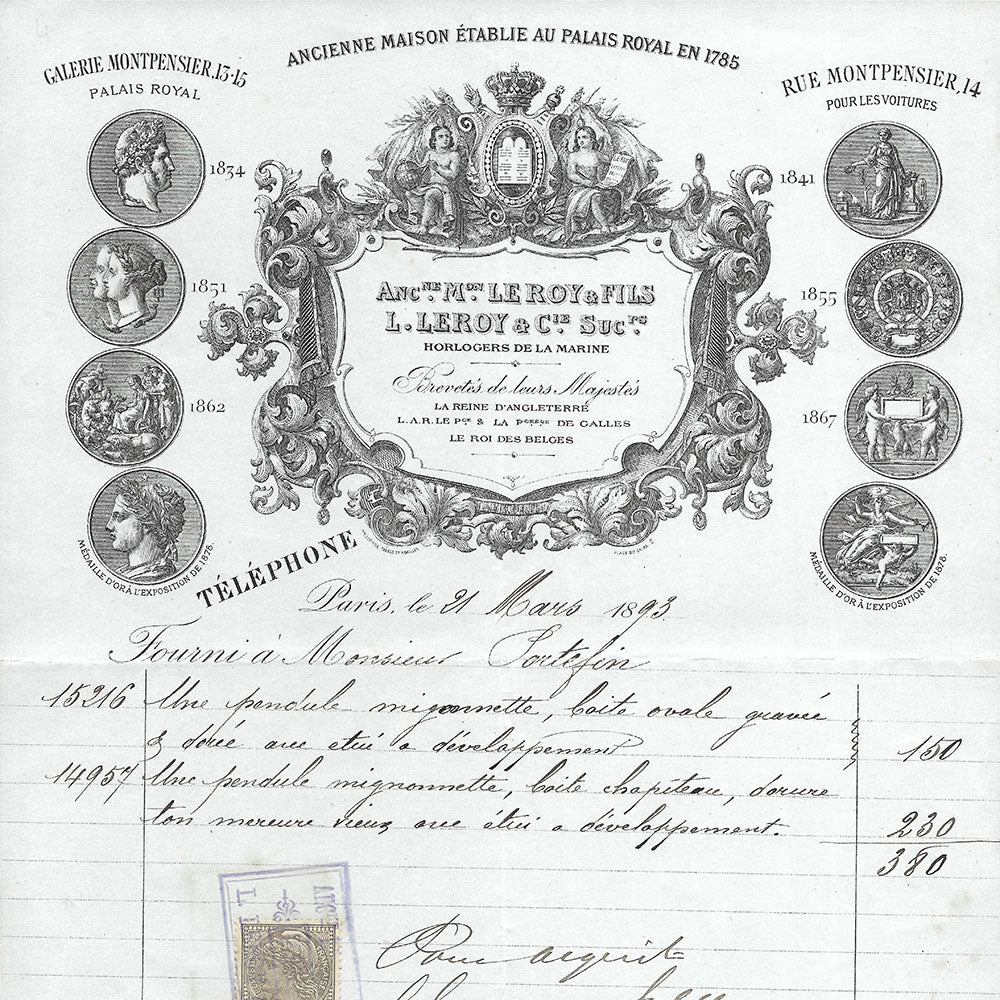 ANCIENNE MAISON ÉTABLIE AU PALAIS ROYAL EN 1785
GALERIE MONTPENSIER, 13-15
PALAIS ROYAL
RUE MONTPENSIER, 14
POUR LES VOITURES
1834
1841
1851
1855
1862
1867
MÉDAILLE D'OR À L'EXPOSITION DE 1878.
MÉDAILLE D'OR À L'EXPOSITION DE 1878.
ANCNE MON LE ROY & FILS
L. LEROY & CIE SUCRS
HORLOGERS DE LA MARINE
Brevetés de leurs Majestés
LA REINE D'ANGLETERRE
L.A.R. LE PCE & LA PCESSE DE GALLES
LE ROI DES BELGES
TÉLÉPHONE
Paris, le 21 Mars 1893
Fourni à Monsieur Portefin
15216 Une pendule mignonnette, boite ovale gravée
& dorée avec etui a développement 150
14957 Une pendule mignonnette, boite chapiteau, dorure
ton mercure vieux avec étui a développement. 230
380
Pour acquit